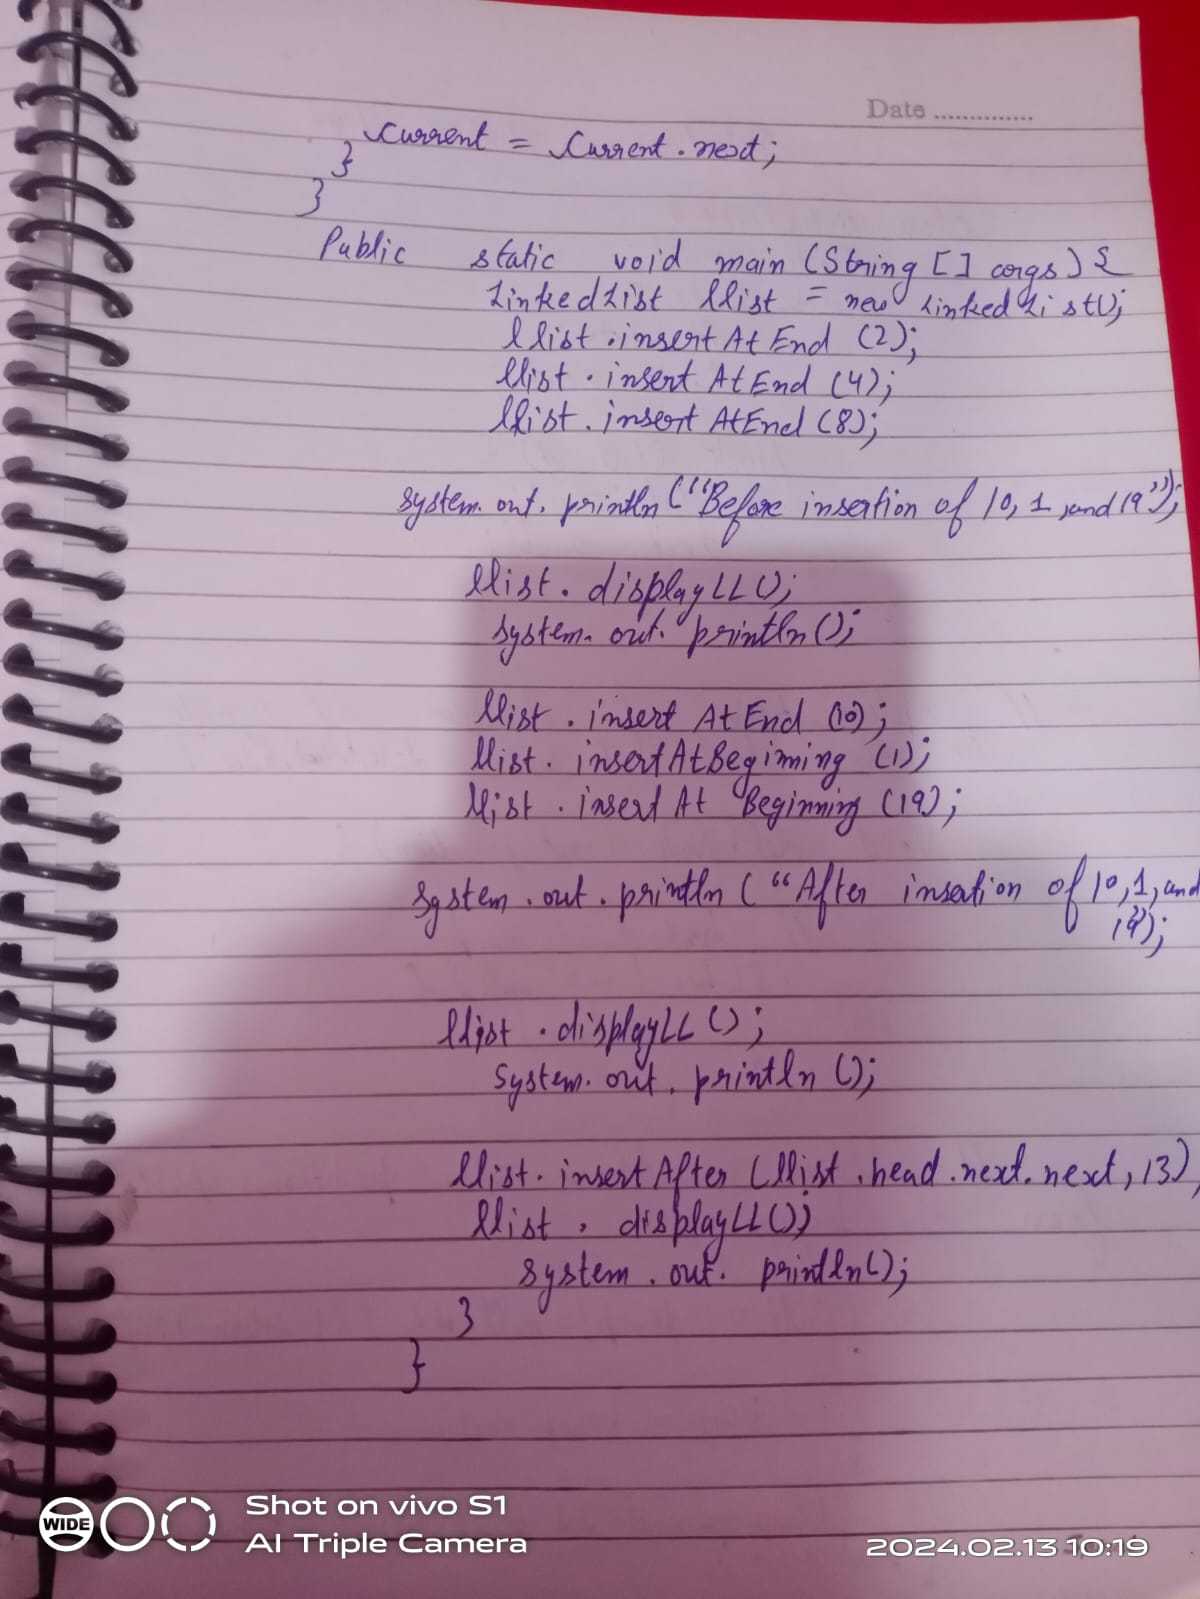 Date ..............
current = current.next;
}
}
Public static void main (String [] args) {
LinkedList llist = new LinkedList();
llist.insertAtEnd (2);
llist.insertAtEnd (4);
llist.insertAtEnd (8);
system.out.println ("Before insertion of 10, 1 ,and 19");
llist.displayLL();
system.out.println();
llist.insertAtEnd (10);
llist.insertAtBeginning (1);
llist.insertAtBeginning (19);
system.out.println ("After insertion of 10, 1, and
19");
llist.displayLL();
system.out.println();
llist.insertAfter (llist.head.next.next, 13)
llist.displayLL();
system.out.println();
}
}
WIDE
Shot on vivo S1
AI Triple Camera
2024.02.13 10:19